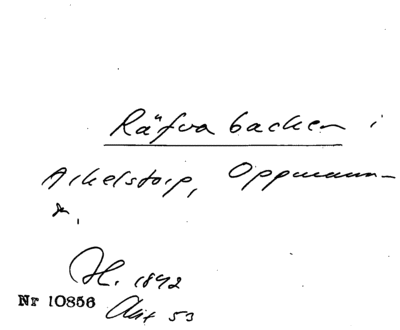 Räfvabacken i
Arkelstorp, Oppmanna-
H. 1842
Nr 10856 Akt 53